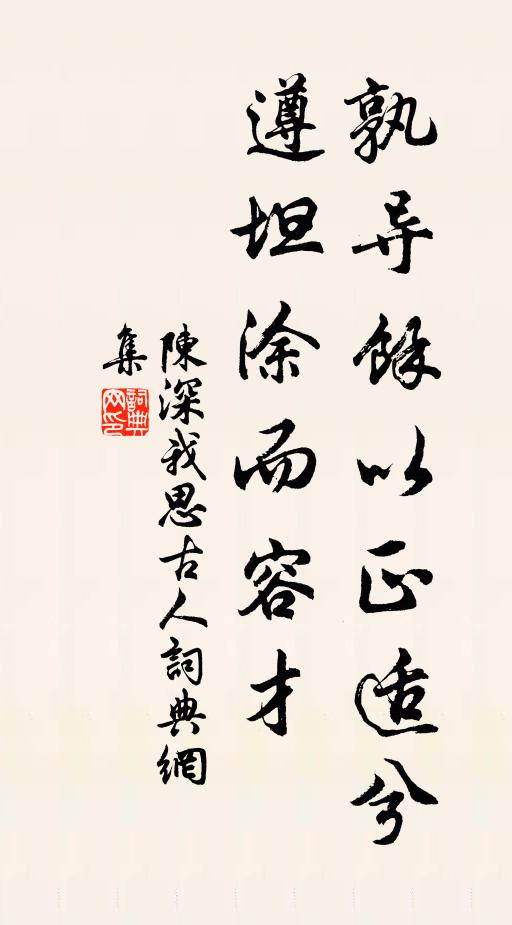 孰导馀以正适兮
遵坦涂而容才
陳深我思古人詞典網
集
詞典
网印